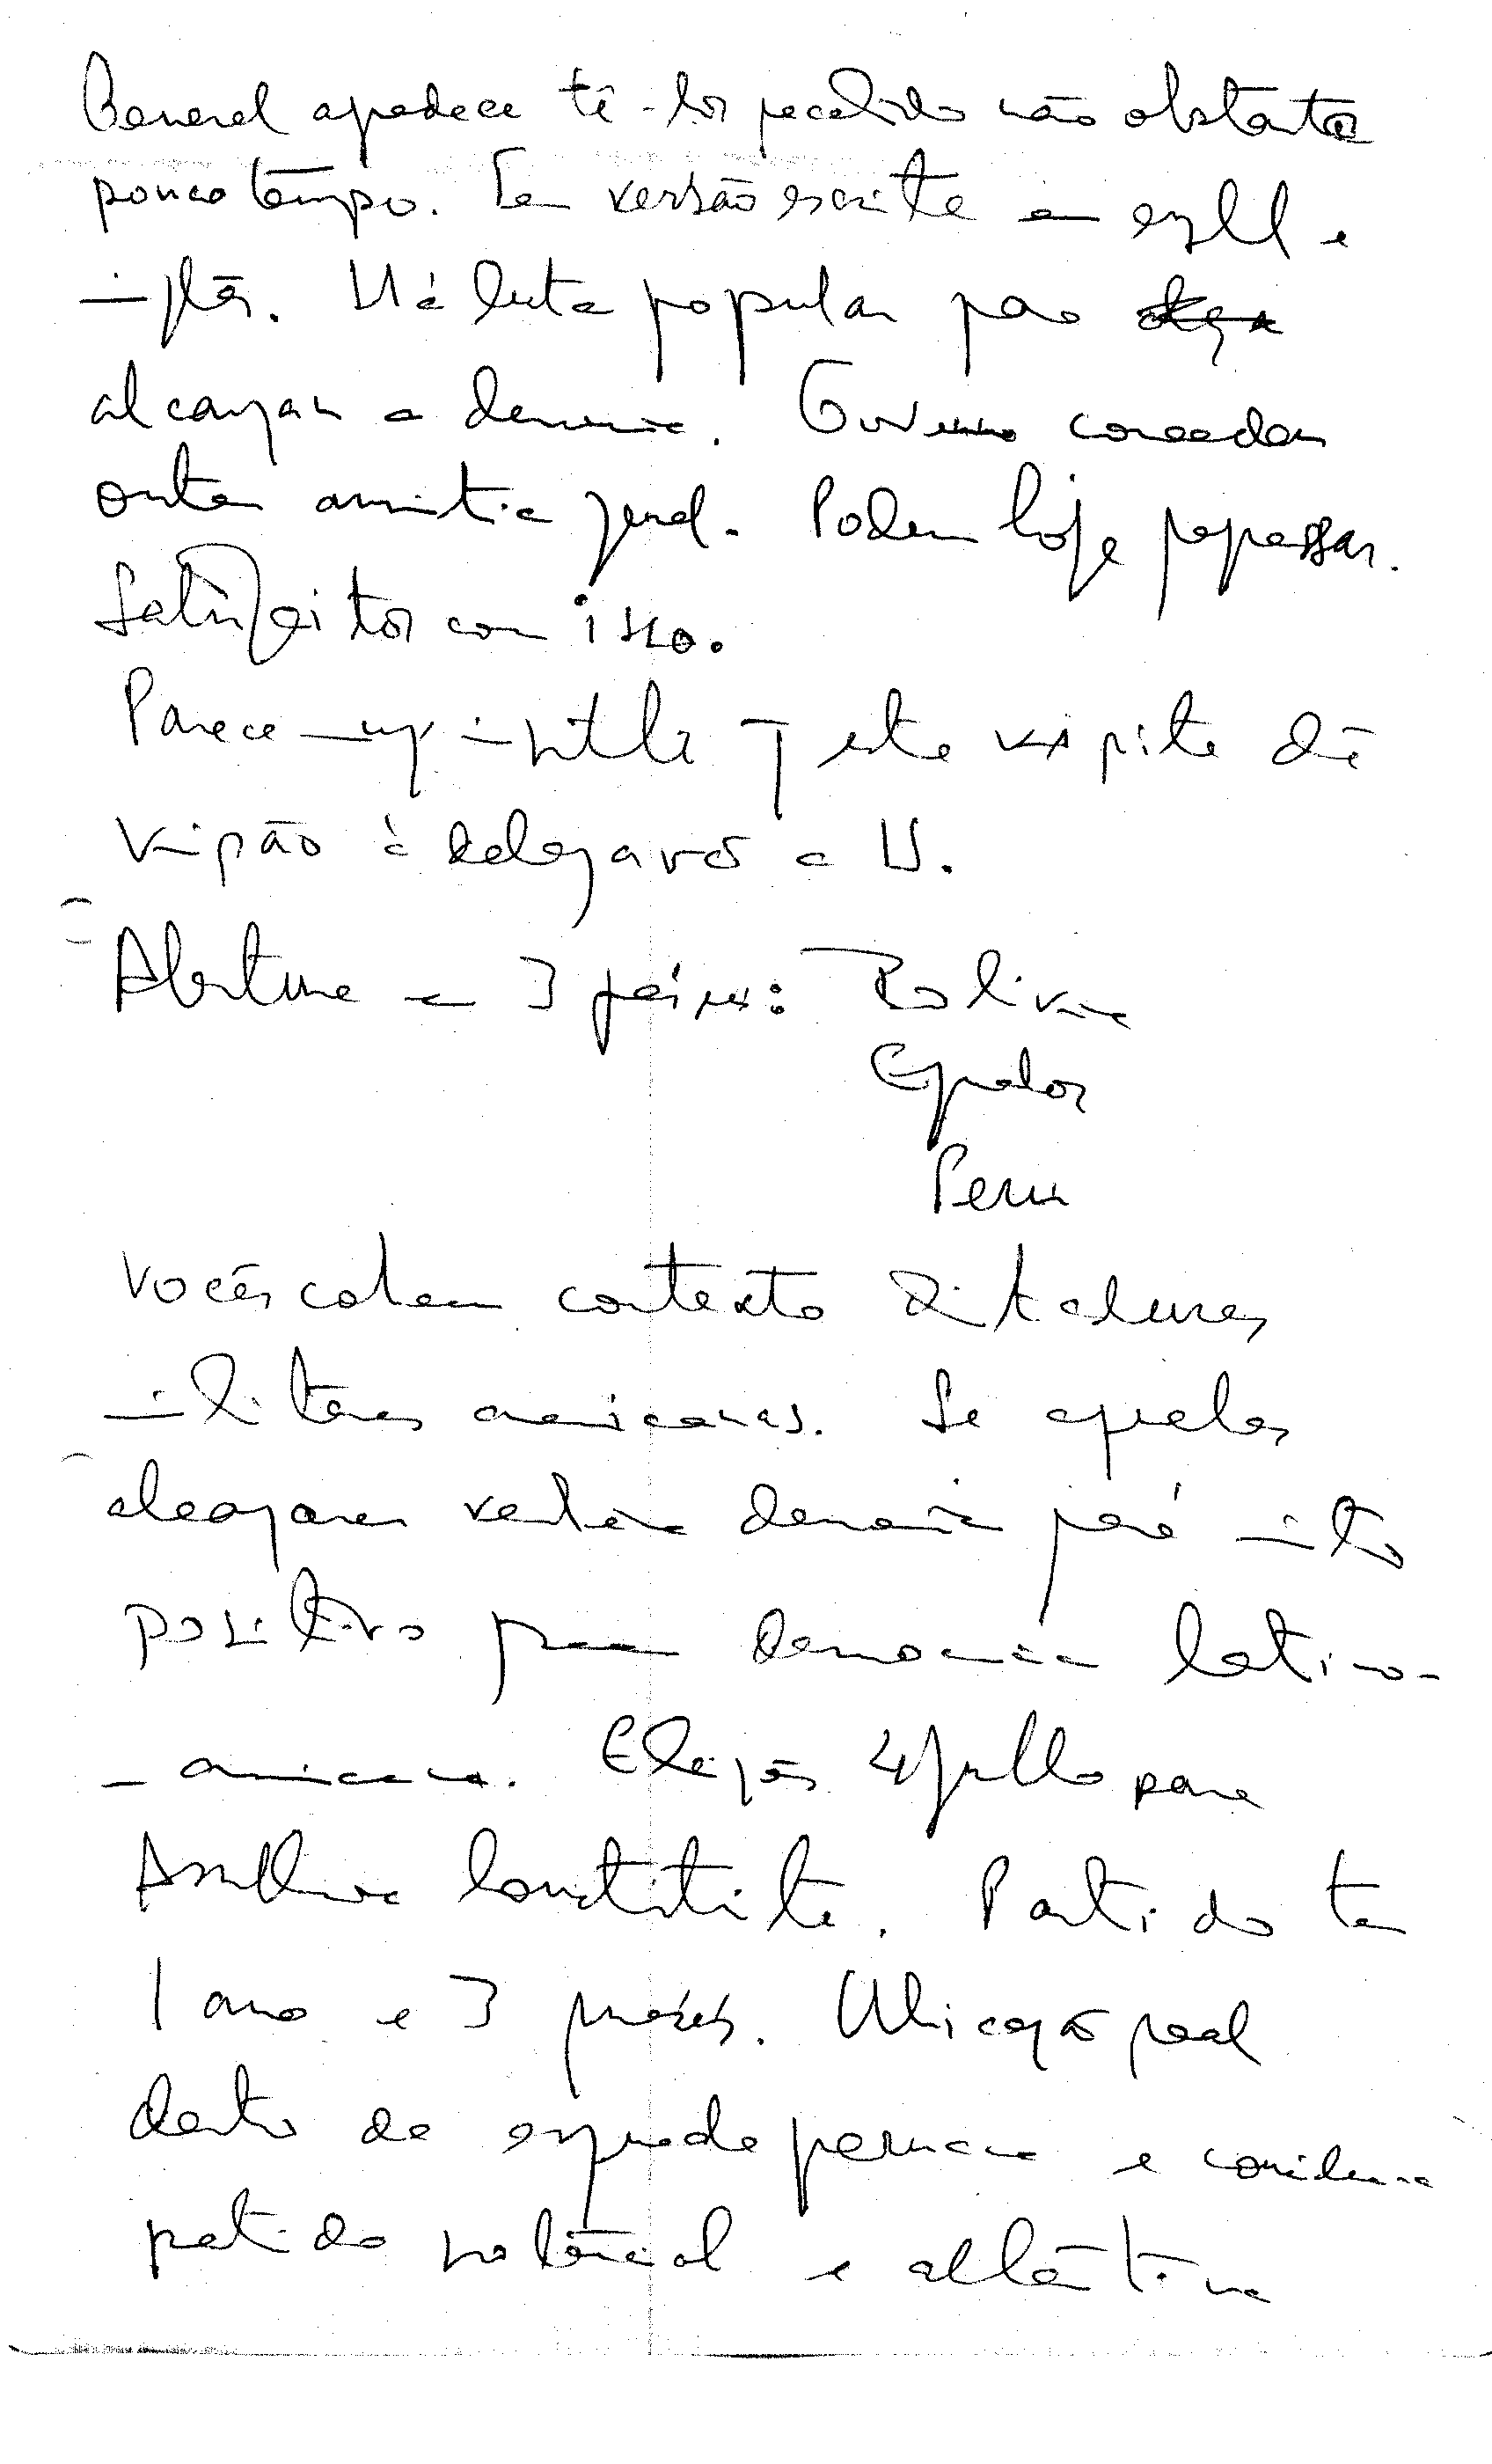 General agradece tê-los recebido não obstante
pouco tempo. Tem versão escrita em esp. e
inglês. Há luta popular para
alcançar a democracia. Governo concedeu
ontem amnistia geral. Podem hoje regressar.
Satisfeitos com isso.
Parece-me importante q esta visita dê
visão à delegação
Abertura em 3 países: Bolivia
Equador
Peru
Vocês sabem contexto ditaduras
militares americanas. Se aqueles
alcançarem democracia será muito
positivo para democracia latino-
-americana. Eleições 4 Junho para
Assembleia Constituinte. Partido tem
1 ano e 3 meses. Ubicação real
dentro da esquerda peruana e considera-se
partido potencial e alternativa